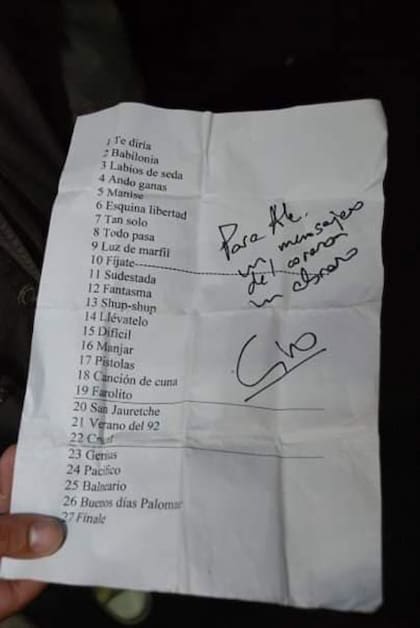 1 Te diría
2 Babilonia
3 Labios de seda
4 Ando ganas
5 Manise
6 Esquina libertad
7 Tan solo
8 Todo pasa
9 Luz de marfil
10 Fíjate
11 Sudestada
12 Fantasma
13 Shup-shup
14 Llévatelo
15 Difícil
16 Manjar
17 Pistolas
18 Canción de cuna
19 Farolito
20 San Jauretche
21 Verano del 92
22 Cruel
23 Genius
24 Pacífico
25 Balneario
26 Buenos días Palomar
27 Finale
Para Ale.
un mensajero
del corazon
un abrazo